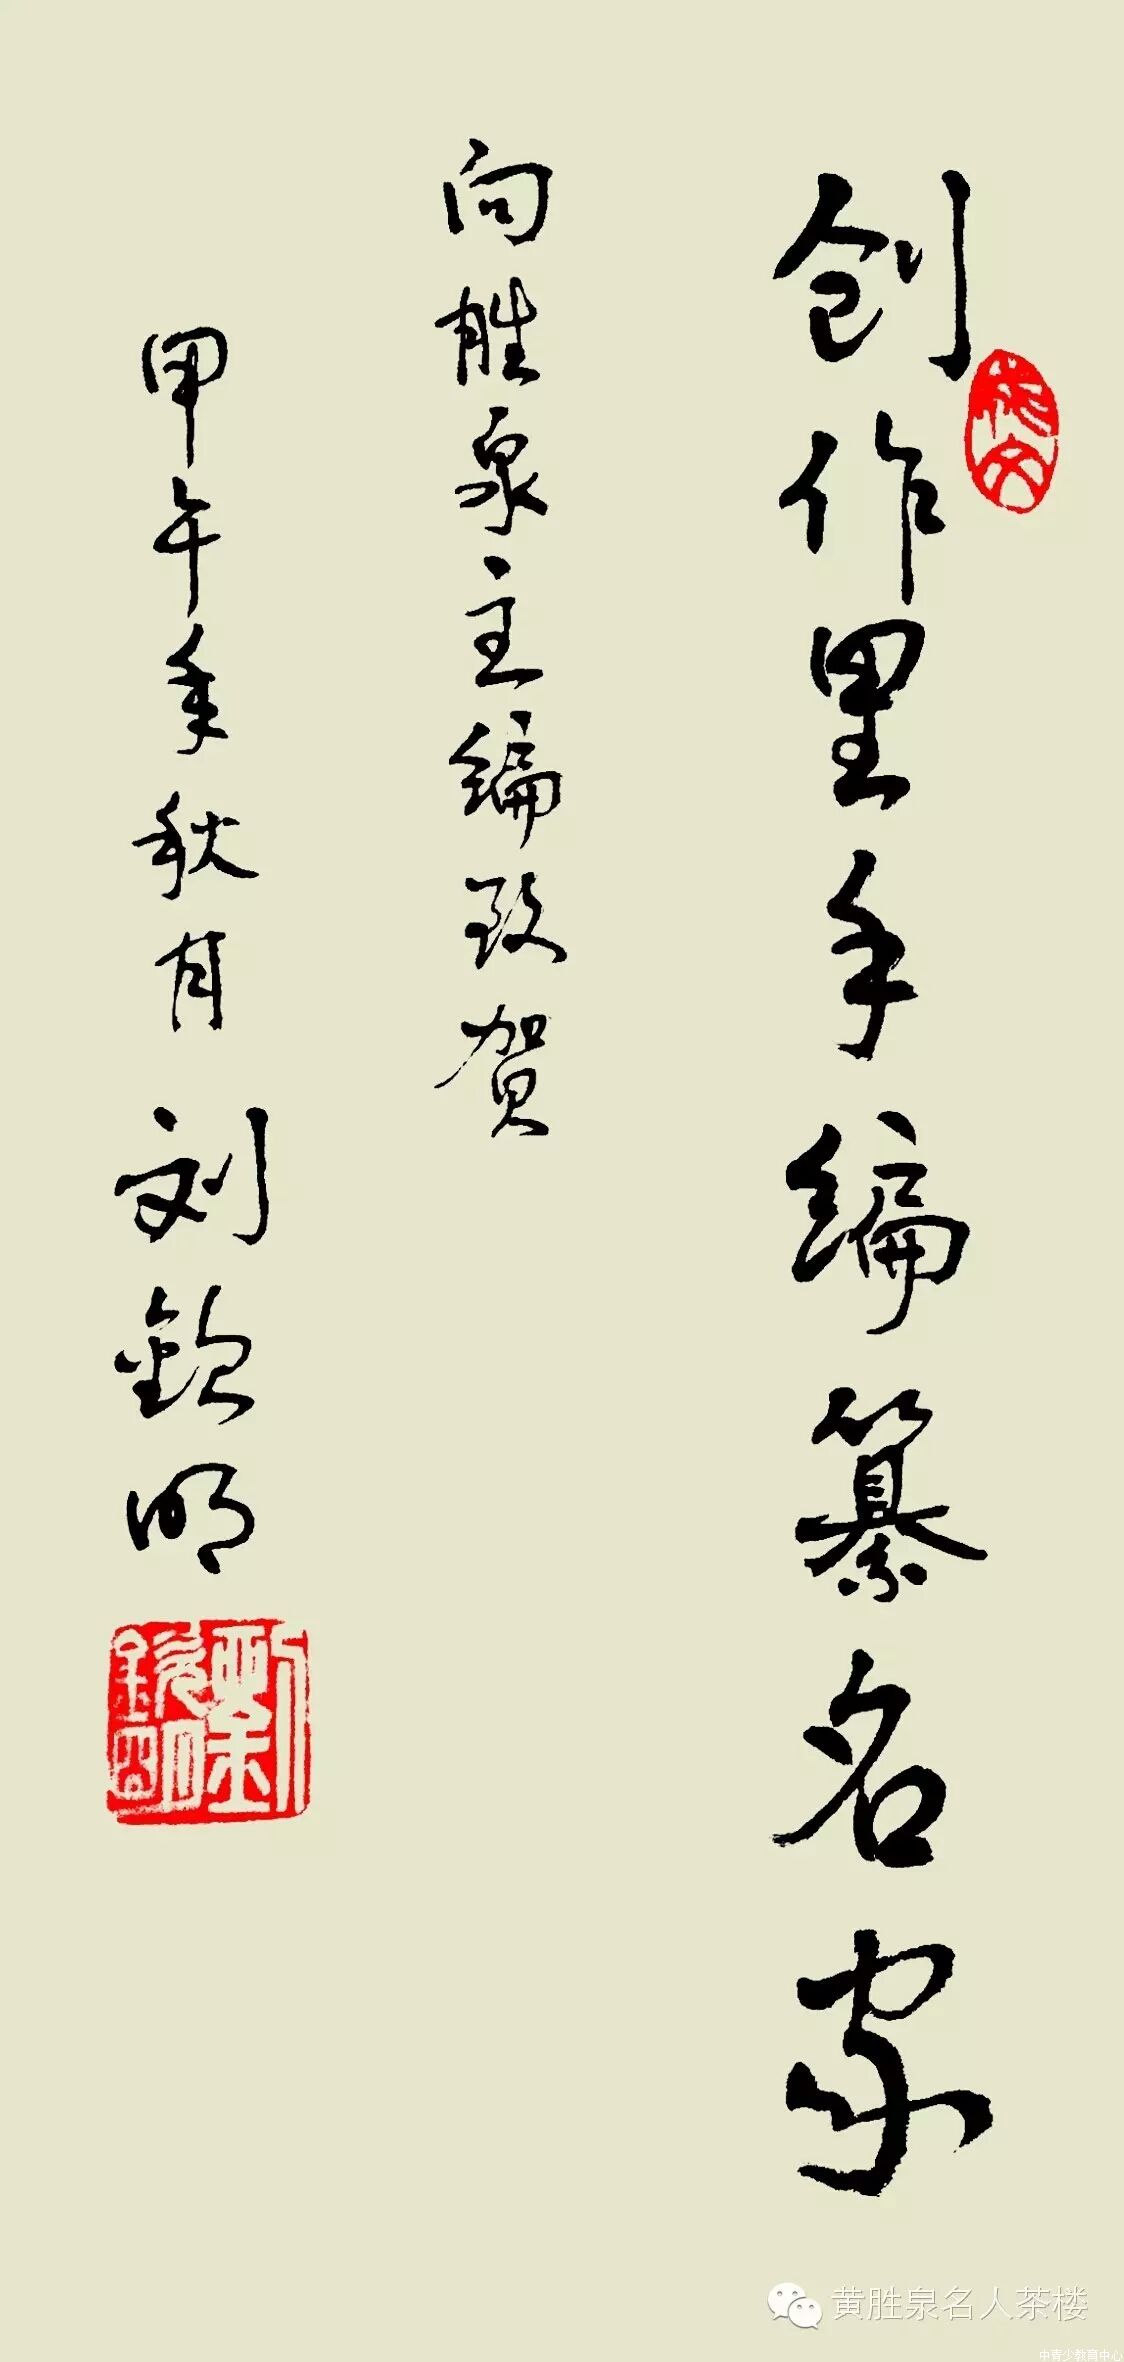 创作里手编纂名家
向胜泉主编致贺
甲午年秋月 刘钦明
劉欽明
黄胜泉名人茶楼
中青少教育中心